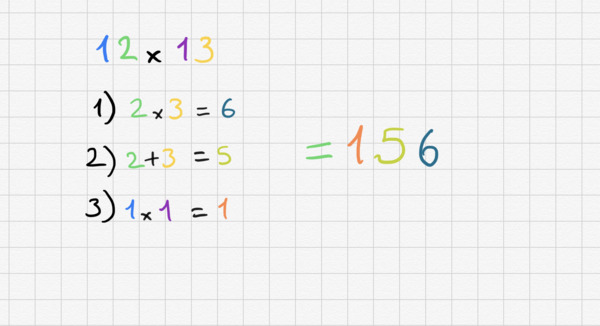 12 x 13
1) 2 x 3 = 6
2) 2 + 3 = 5
3) 1 x 1 = 1
= 156